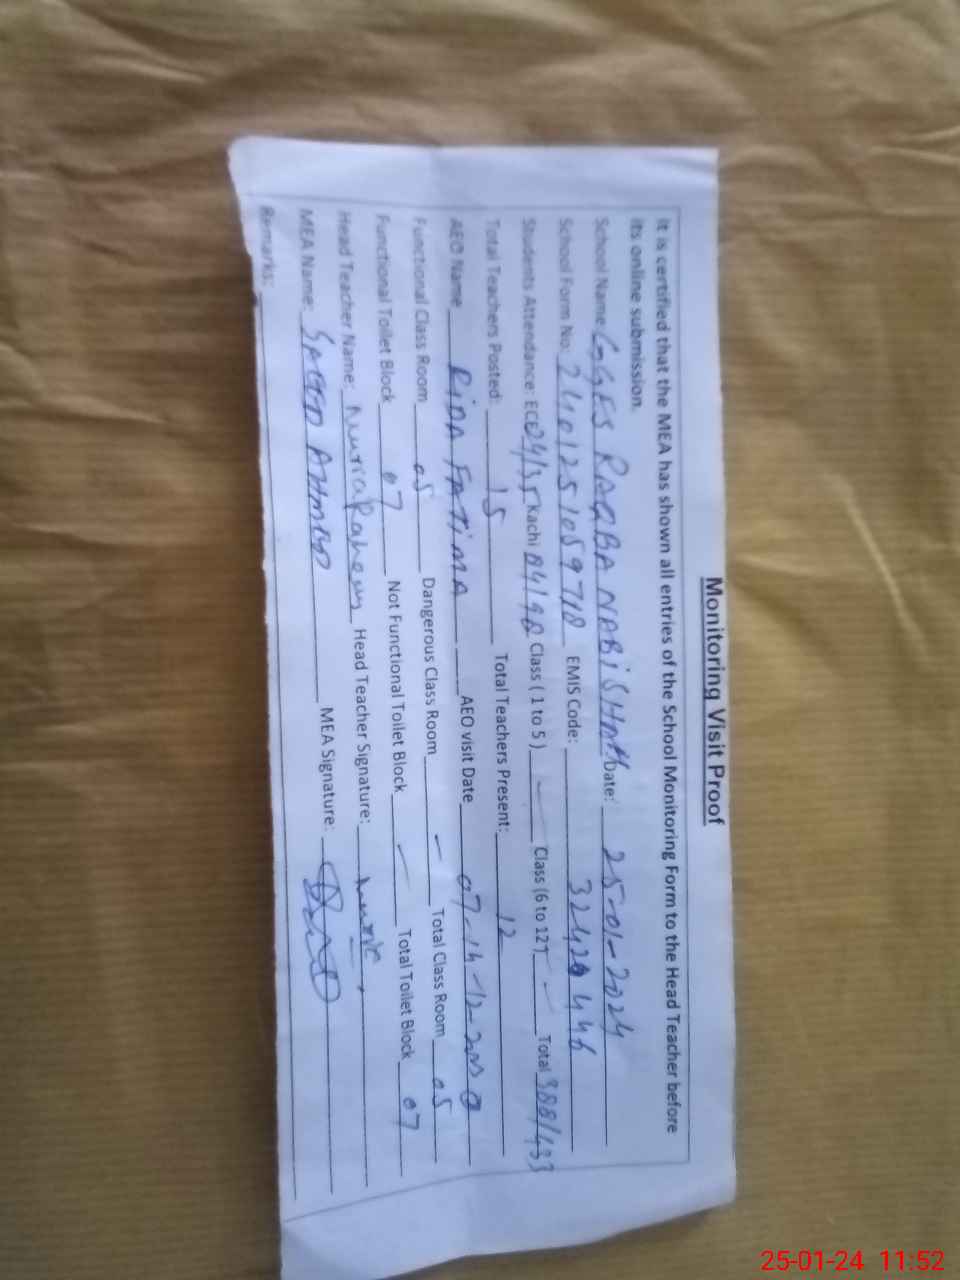 Monitoring Visit Proof
It is certified that the MEA has shown all entries of the School Monitoring Form to the Head Teacher before
its online submission.
School Name GGES RAQBA NABi SHAH Date: 25-01-2024
School Form No: EMIS Code: 32420446
Students Attendance: ECE 04/35 Kachi Class ( 1 to 5 ) — Class (6 to 12) — Total 388/433
Total Teachers Posted: 15 Total Teachers Present: 12
AEO Name RiDA FATiMA AEO visit Date
Functional Class Room 05 Dangerous Class Room — Total Class Room 05
Functional Toilet Block 07 Not Functional Toilet Block — Total Toilet Block 07
Head Teacher Name: Head Teacher Signature:
MEA Name: SAEED AHMED MEA Signature:
Remarks:
25-01-24 11:52